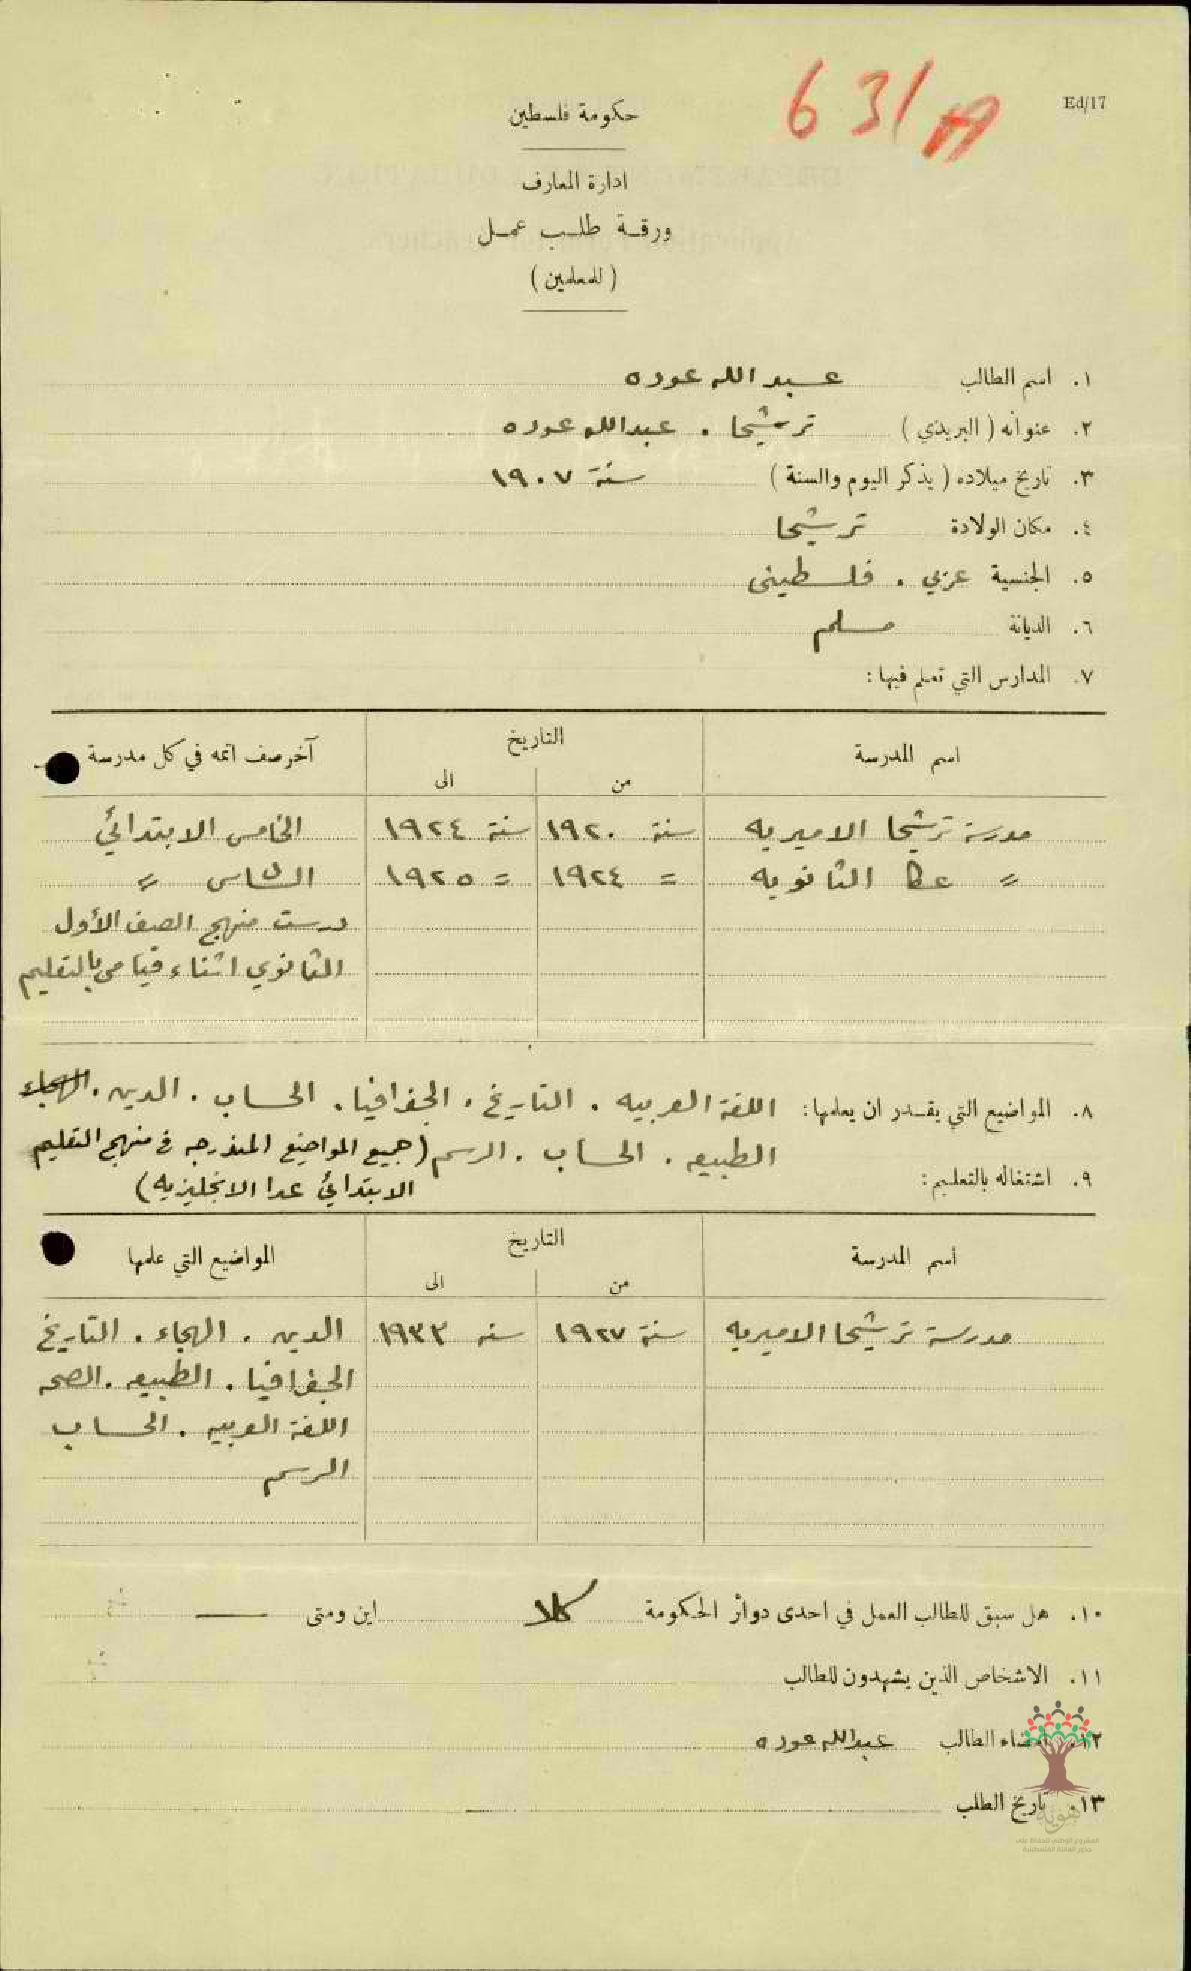 Ed/17
631/A
حكومة فلسطين
ادارة المعارف
ورقة طلب عمل
( للمعلمين )
١. اسم الطالب عبد الله عوده
٢. عنوانه ( البريدي ) ترشيحا . عبدالله عوده
٣. تاريخ ميلاده ( يذكر اليوم والسنة ) سنة ١٩٠٧
٤. مكان الولادة ترشيحا
٥. الجنسية عربي . فلسطيني
٦. الديانة مسلم
٧. المدارس التي تعلم فيها :
اسم المدرسة التاريخ آخر صف اتمه في كل مدرسة
من الى
مدرسة ترشيحا الاميريه سنة ١٩٢٠ سنة ١٩٢٤ الخامس الابتدائي
" عكا الثانويه = ١٩٢٤ = ١٩٢٥ السادس "
درست منهج الصف الأول
الثانوي اثناء قيامي بالتعليم
٨. المواضيع التي يقدر ان يعلمها : اللغة العربيه . التاريخ . الجغرافيا . الحساب . الدين . الهجاء
الطبيعه . الحساب . الرسم (جميع المواضيع المندرجه في منهج التعليم
الابتدائي عدا الانجليزيه)
٩. اشتغاله بالتعليم :
اسم المدرسة التاريخ المواضيع التي علمها
من الى
مدرسة ترشيحا الاميريه سنة ١٩٢٧ سنه ١٩٣٣ الدين . الهجاء . التاريخ
الجغرافيا . الطبيعه . الصحه
اللغة العربيه . الحساب
الرسم
١٠. هل سبق للطالب العمل في احدى دوائر الحكومة كلا اين ومتى —
١١. الاشخاص الذين يشهدون للطالب
١٢. امضاء الطالب عبدالله عوده
١٣. تاريخ الطلب —
هوية
المشروع الوطني للحفاظ على
جذور العائلة الفلسطينية